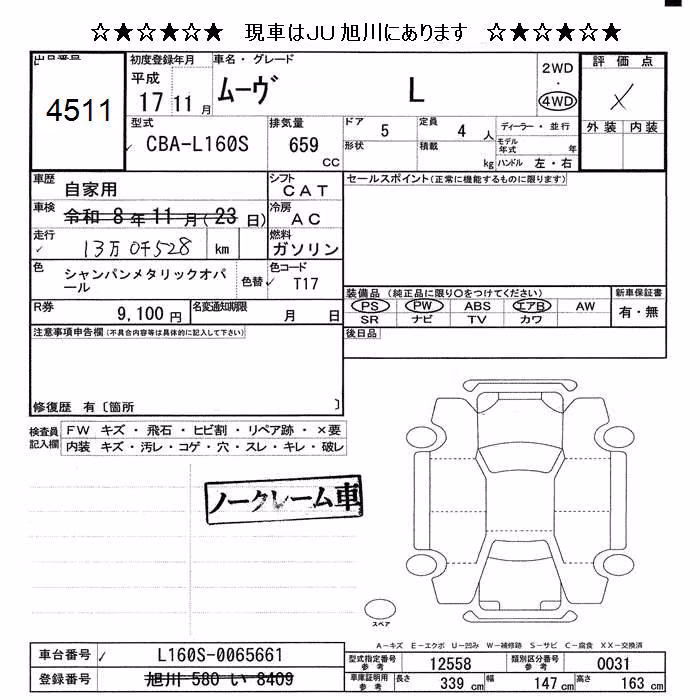 ☆★☆★☆★ 現車はJU旭川にあります ☆★☆★☆★
出品番号
4511
初度登録年月
平成
17 11 月
車名・グレード
ムーヴ L
2WD
・
4WD
評価点
X
外装 内装
型式
CBA-L160S
排気量
659
CC
ドア 5
形状
定員 4 人
積載 kg
ディーラー・並行
モデル年式 年
ハンドル 左・右
車歴 自家用
シフト CAT
車検 令和 8 年 11 月 ( 23 日)
冷房 AC
走行 13万0千528 km
燃料 ガソリン
色 シャンパンメタリックオパール
色替
色コード T17
R券 9,100 円
名変通知期限 月 日
セールスポイント(正常に機能するものに限ります)
装備品 (純正品に限り〇をつけてください)
PS PW ABS エアB AW
SR ナビ TV カワ
新車保証書
有・無
後日品
注意事項申告欄(不具合内容等は具体的に記入して下さい)
修復歴 有〔箇所 〕
検査員記入欄
FW キズ・飛石・ヒビ割・リペア跡・×要
内装 キズ・汚レ・コゲ・穴・スレ・キレ・破レ
ノークレーム車
スペア
A-キズ E-エクボ U-凹み W-補修跡 S-サビ C-腐食 XX-交換済
車台番号 L160S-0065661
登録番号 旭川 580 い 8409
型式指定番号 参考 12558
類別区分番号 参考 0031
車庫証明用 参考 長さ 339 cm 幅 147 cm 高さ 163 cm